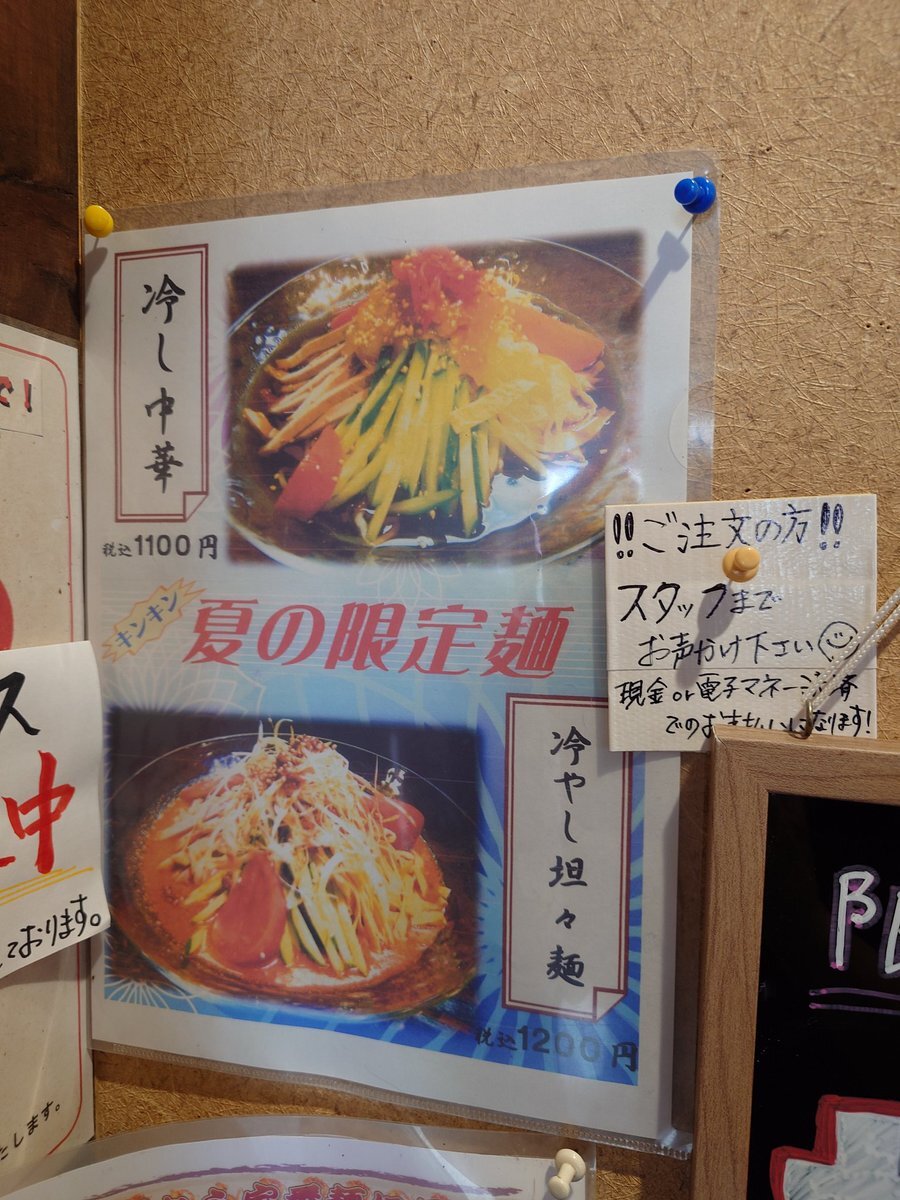 冷し中華
税込1100円
キンキン
夏の限定麺
冷やし坦々麺
税込1200円
!!ご注文の方!!
スタッフまで
お声かけ下さい
現金or電子マネー決済
でのお支払いになります!
ス
中
ております。
たします。